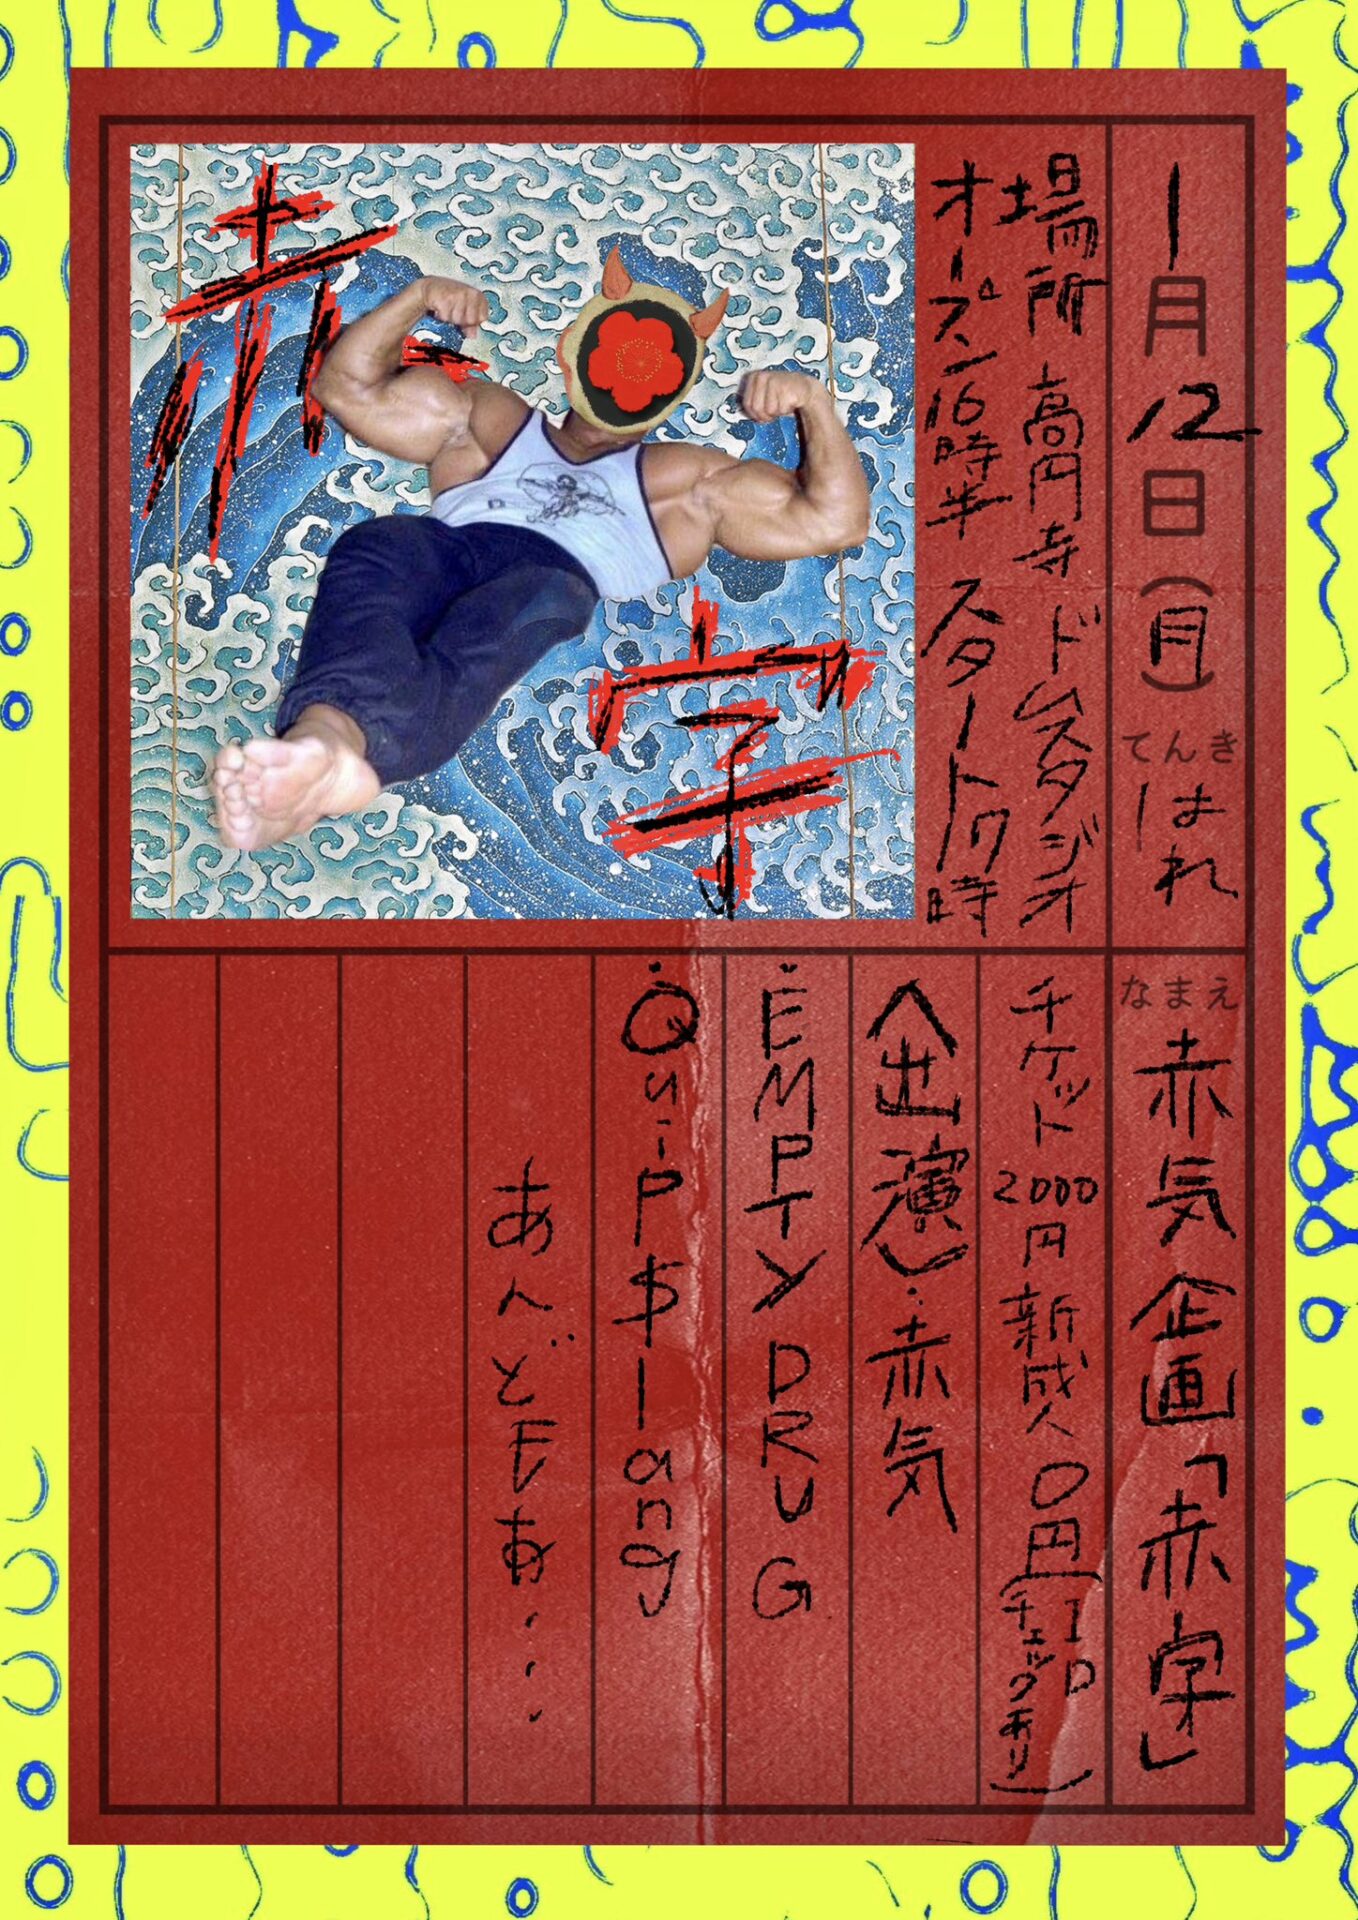 1月12日(月)
てんき
はれ
場所 高円寺 ドムスタジオ
オープン16時半 スタート17時
赤字
なまえ
赤気企画「赤字」
チケット 2000円 新成人0円(IDチェックあり)
〈出演〉:赤気
:EMPTY DRUG
:Qu-ip$lang
あんどモあ....